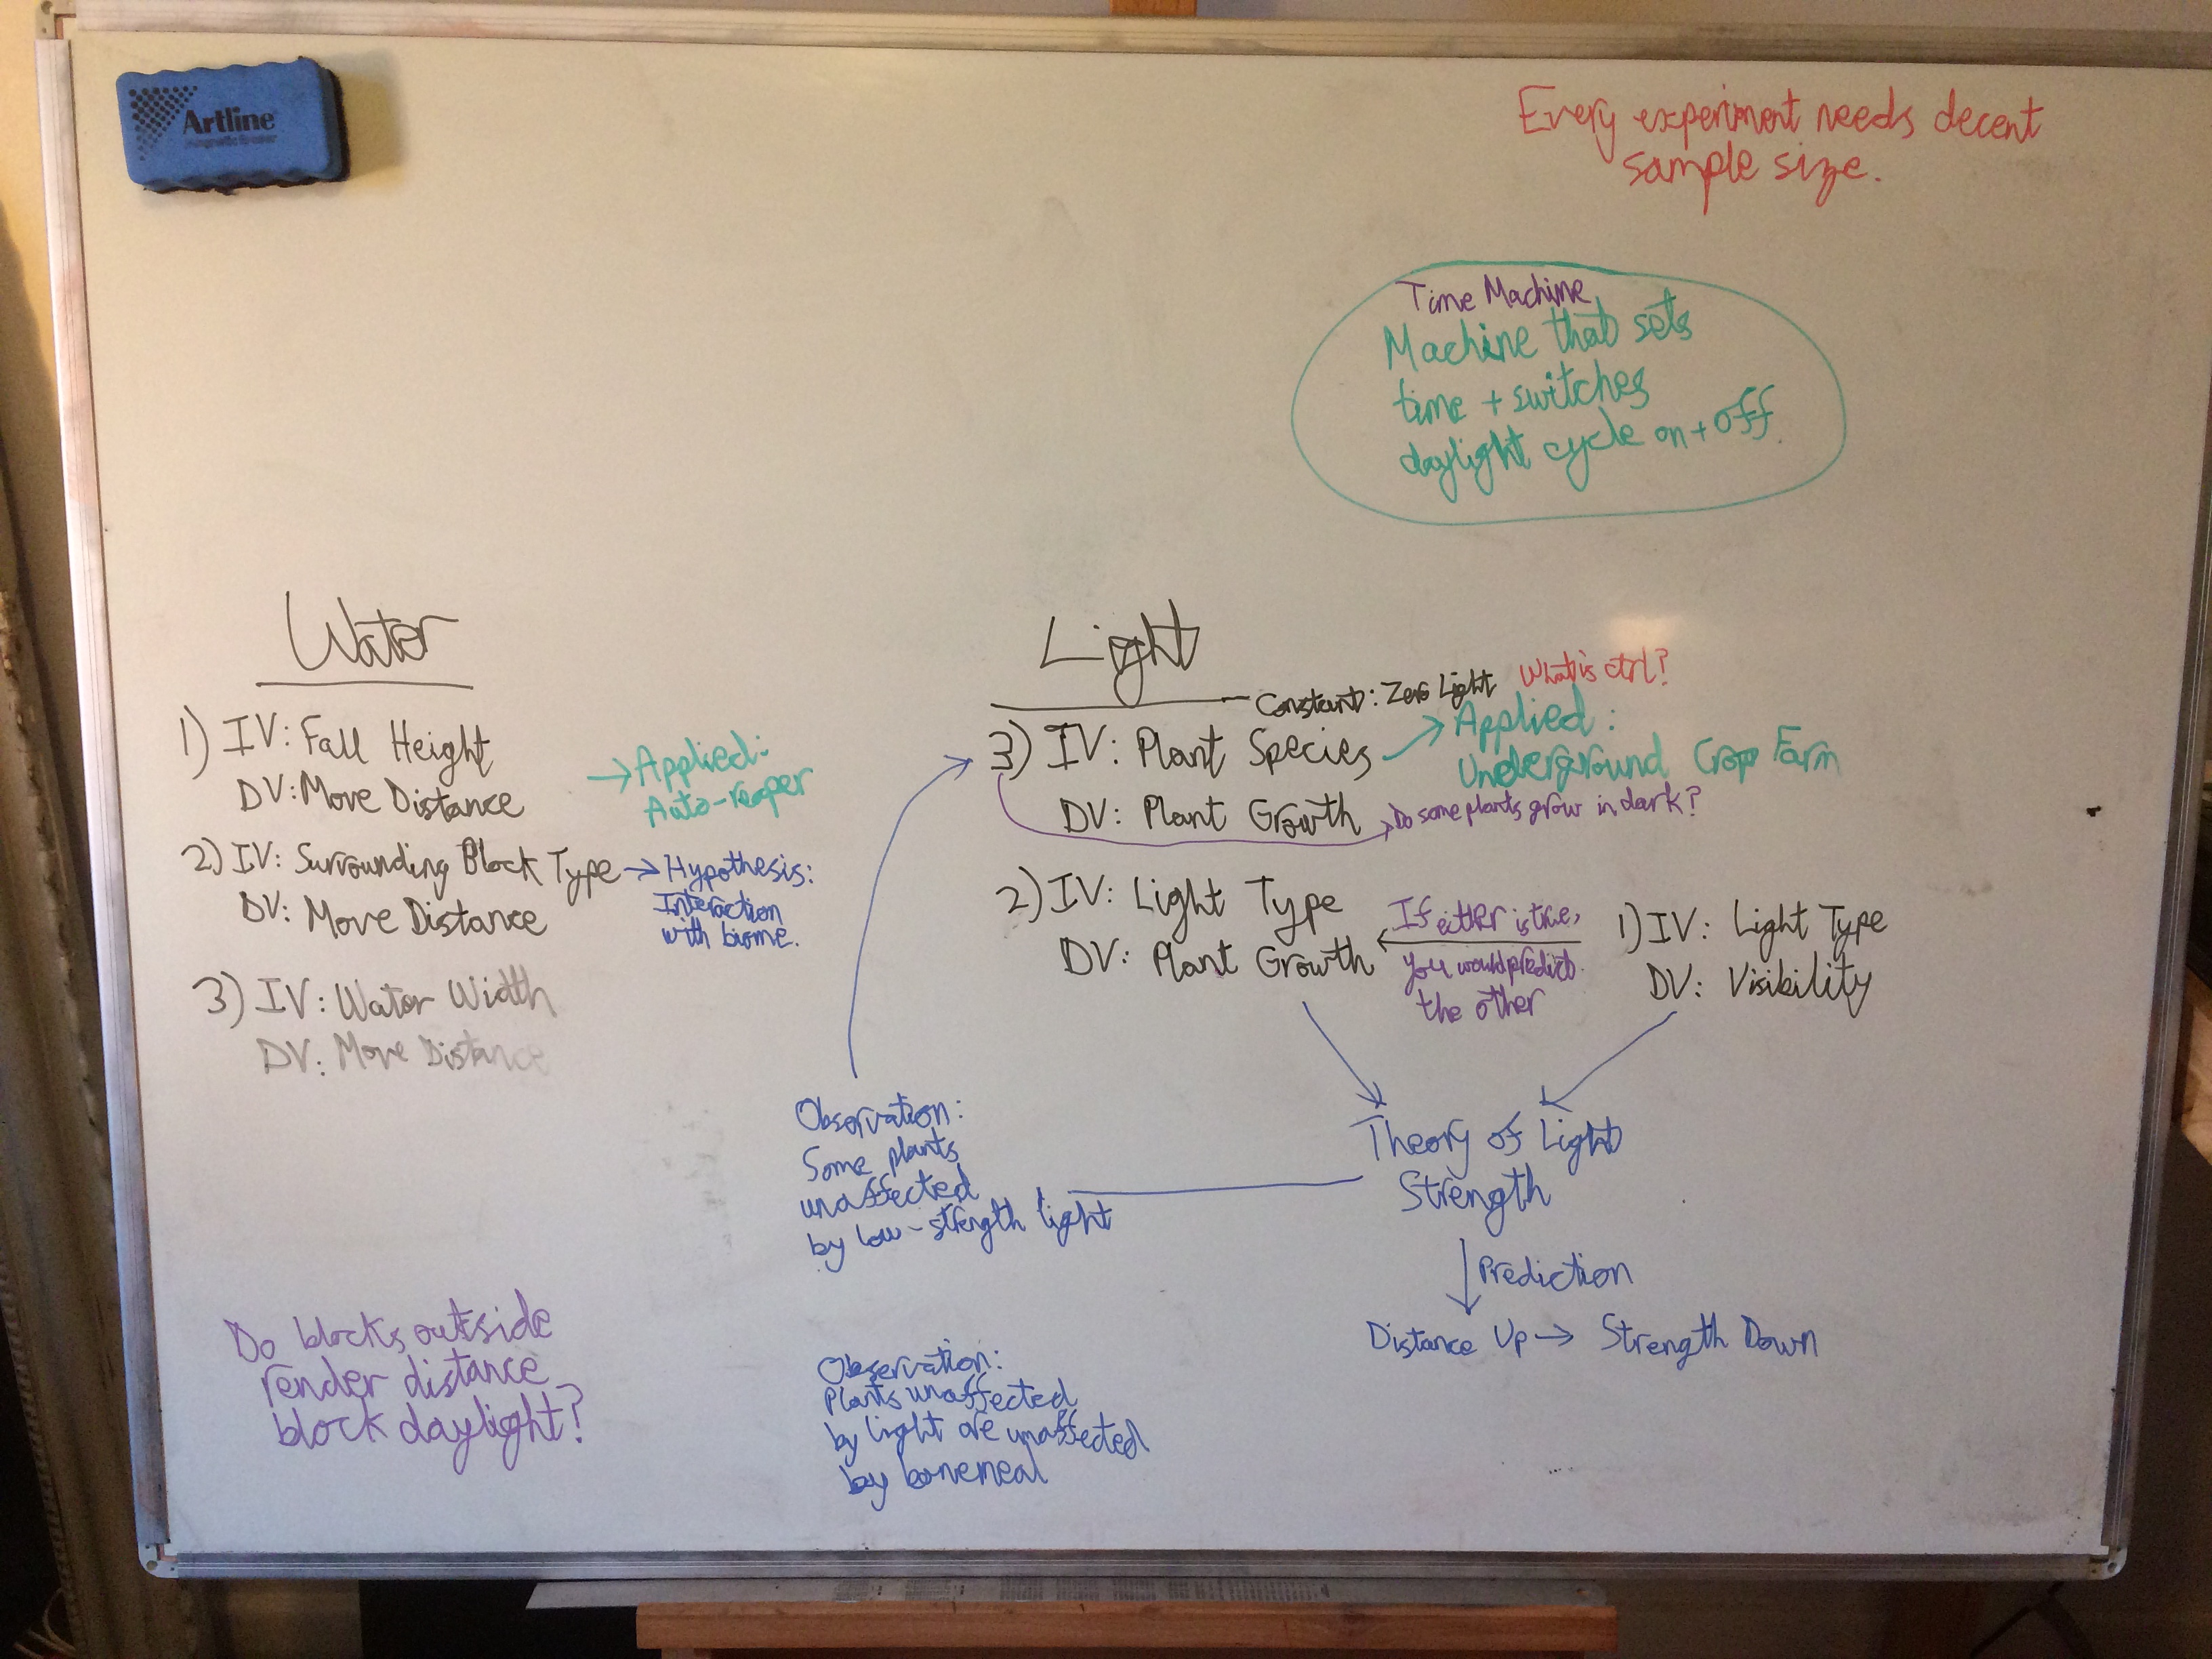 Artline
Every experiment needs decent
sample size.
Time Machine
Machine that sets
time + switches
daylight cycle on + off.
Water
1) IV: Fall Height
DV: Move Distance
→ Applied:
Auto-reaper
2) IV: Surrounding Block Type → Hypothesis:
Interaction
with biome.
DV: Move Distance
3) IV: Water Width
DV: Move Distance
Light
Constant: Zero Light
What is ctrl?
3) IV: Plant Species → Applied:
Underground Crop Farm
DV: Plant Growth
Do some plants grow in dark?
2) IV: Light Type
DV: Plant Growth
If either is true,
you would predict
the other
1) IV: Light Type
DV: Visibility
Theory of Light
Strength
Prediction
Distance Up → Strength Down
Observation:
Some plants
unaffected
by low-strength light
Observation:
Plants unaffected
by light are unaffected
by bonemeal
Do blocks outside
render distance
block daylight?